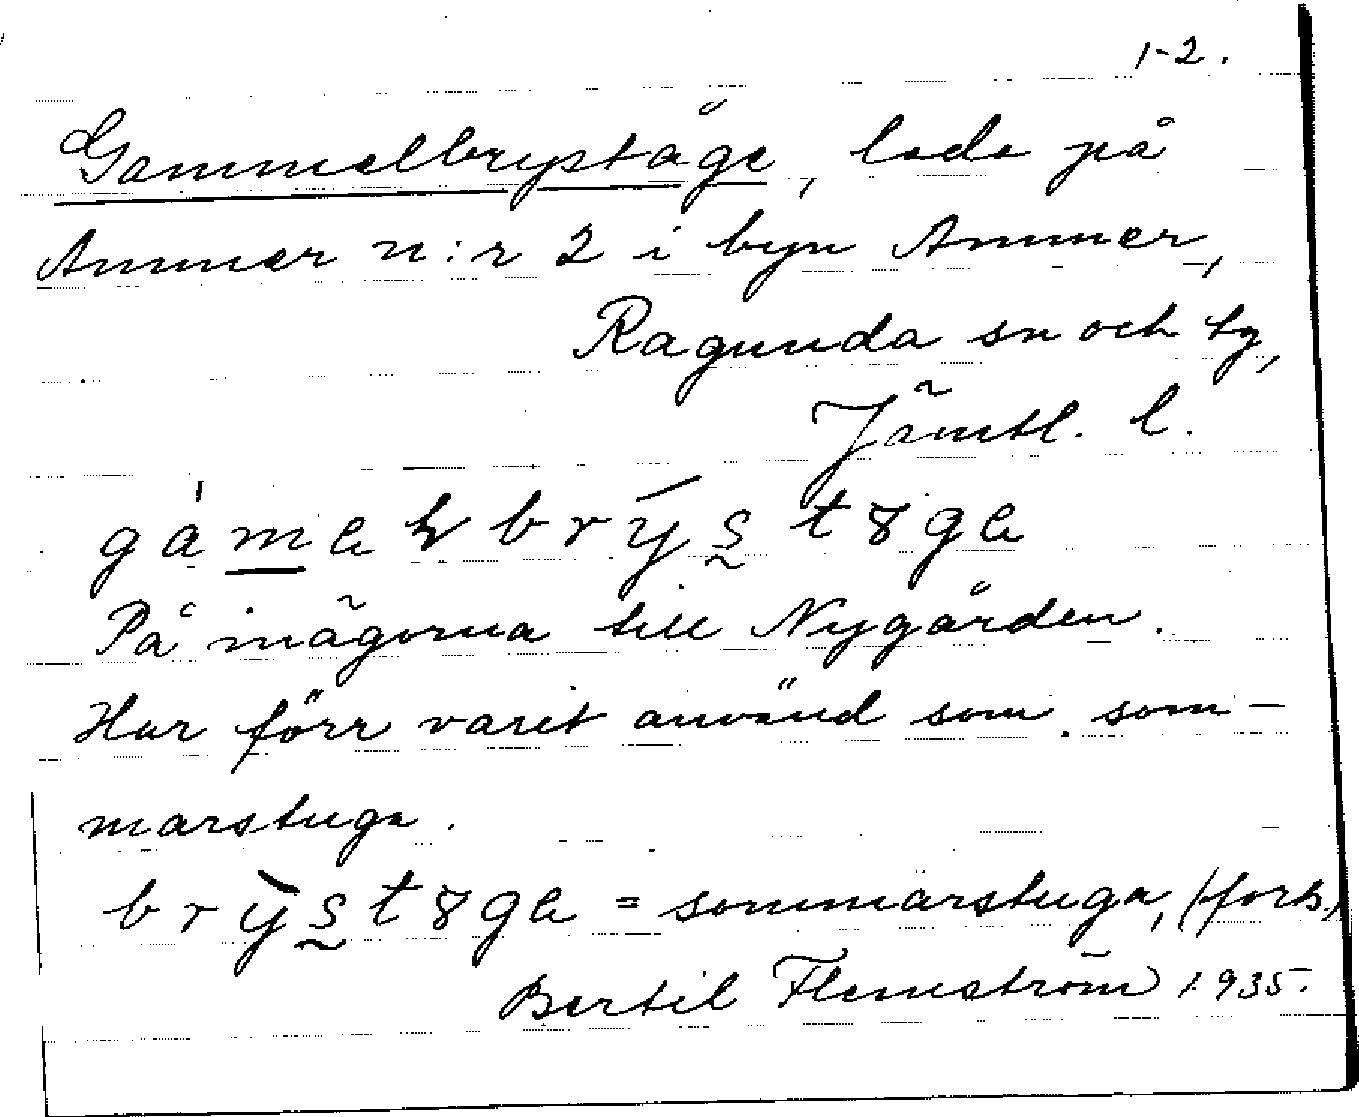 1-2.
Gammelbryståge, lada på
Ammer n:r 2 i byn Ammer,
Ragunda sn och tg,
Jämtl. l.
På inägorna till Nygården.
Har förr varit använd som som-
marstuga.
= sommarstuga, (forts.)
Bertil Flemström 1935.